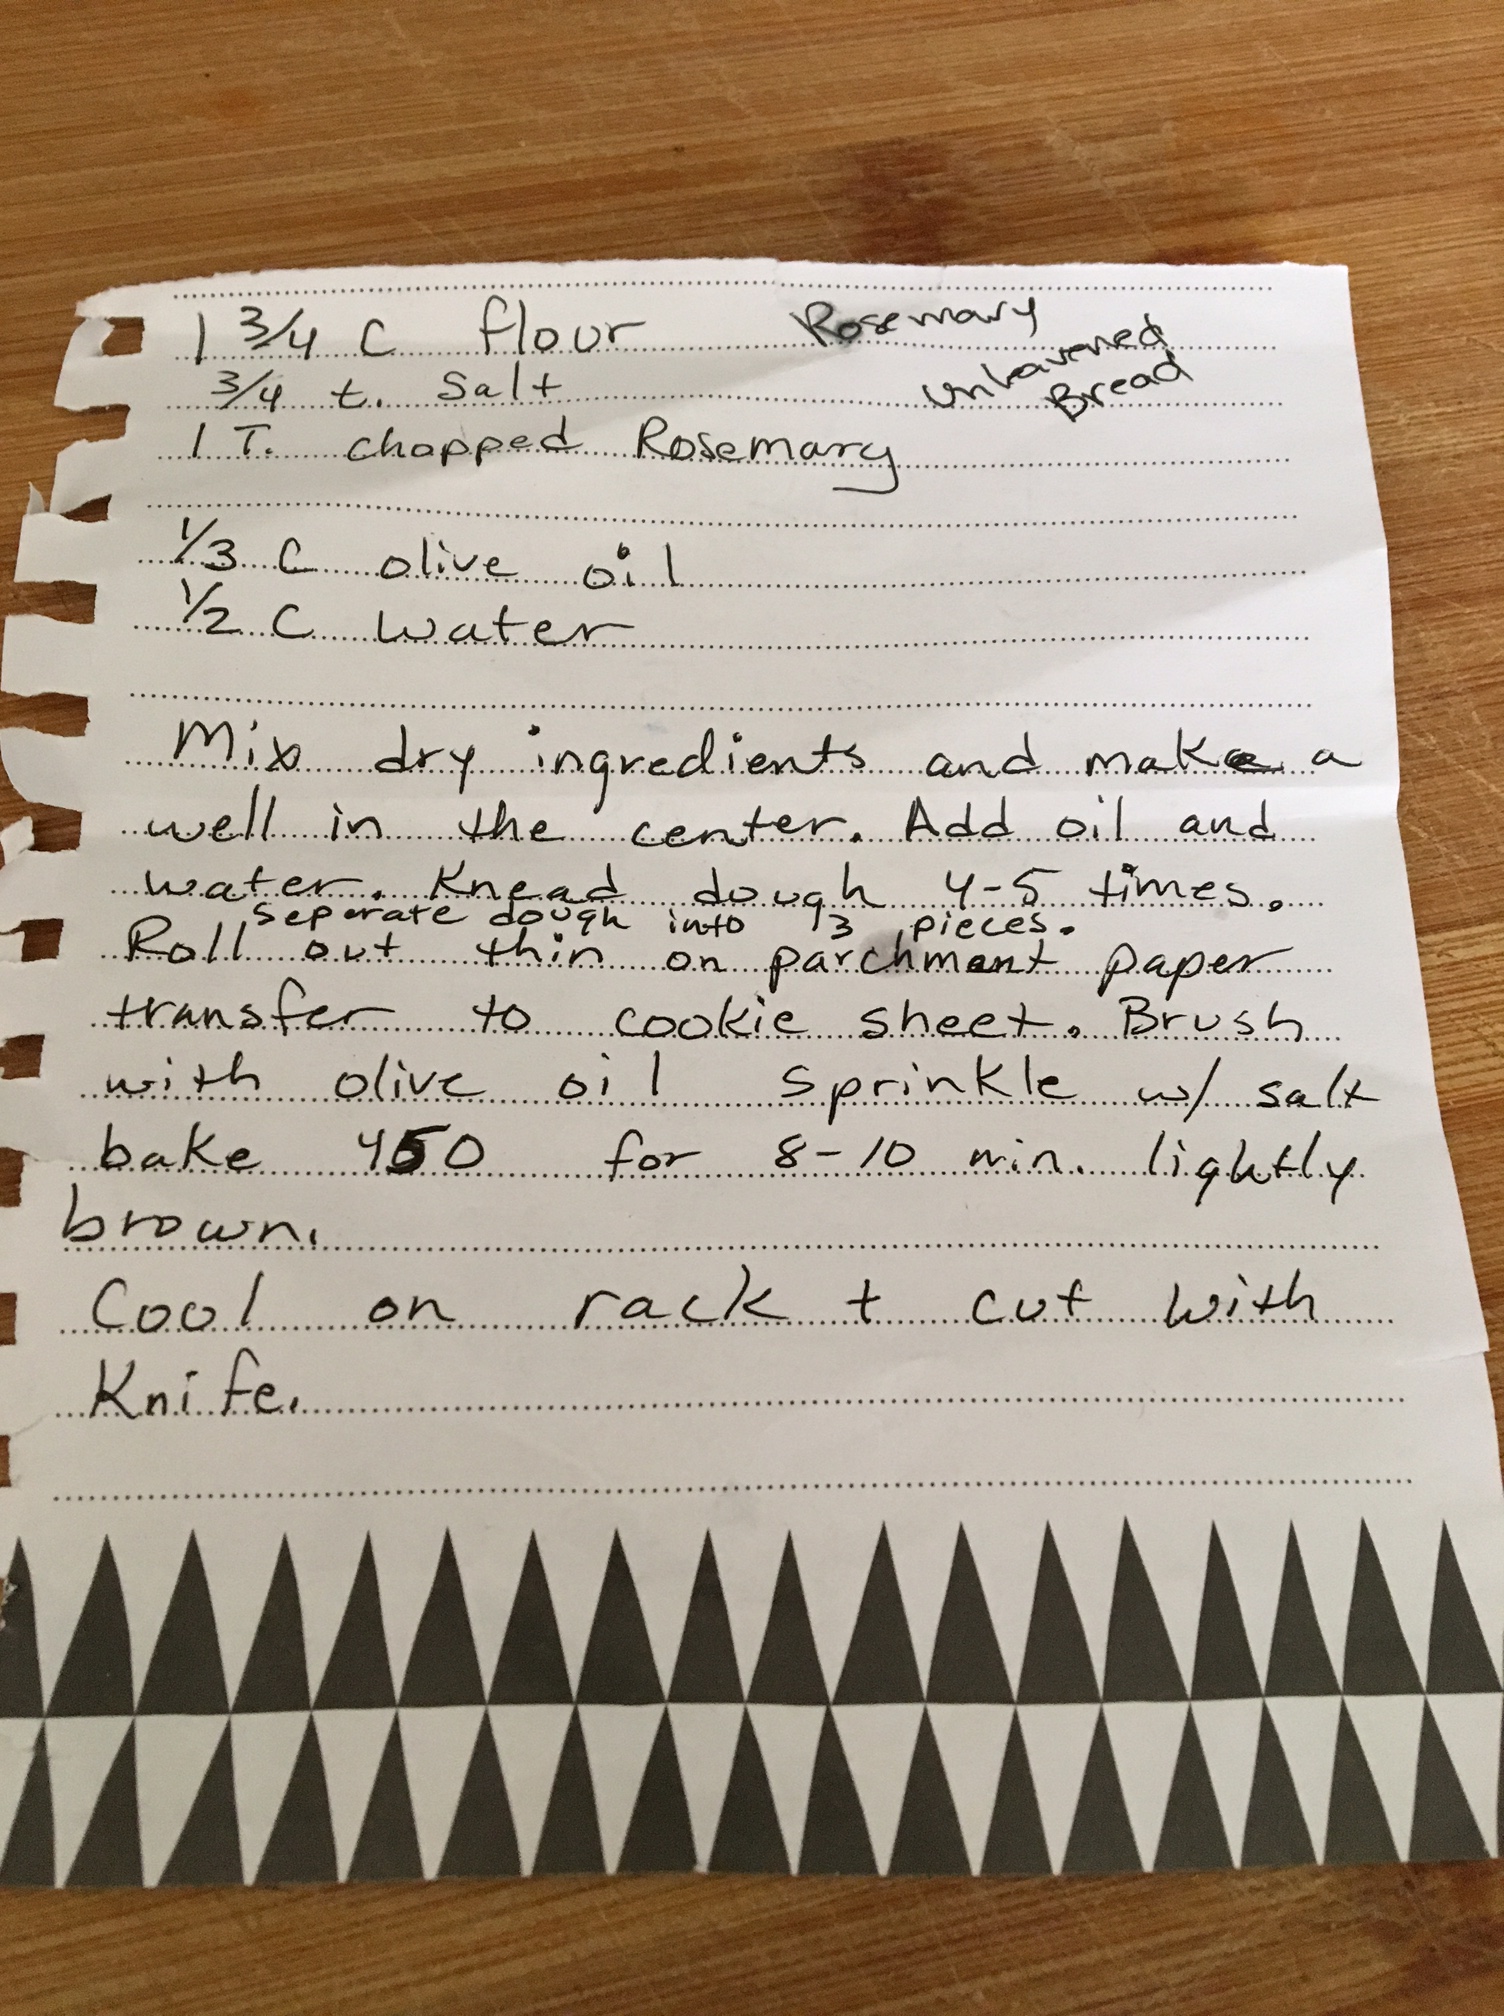 1 3/4 C flour
Rosemary
Unleavened
Bread
3/4 t. Salt
1 T. chopped Rosemary
1/3 C olive oil
1/2 C water
Mix dry ingredients and make a
well in the center. Add oil and
water. Knead dough 4-5 times.
seperate dough into 3 pieces.
Roll out thin on parchment paper
transfer to cookie sheet. Brush
with olive oil sprinkle w/ salt
bake 450 for 8-10 min. lightly
brown.
Cool on rack + cut with
Knife.